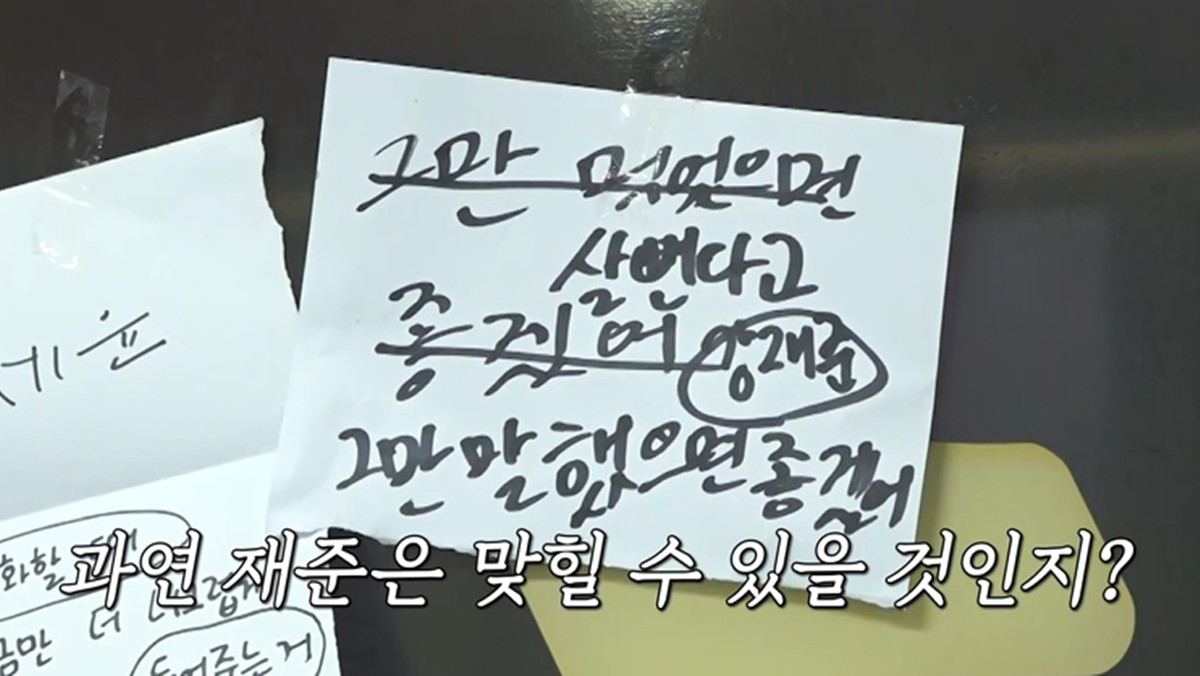 그만 먹었으면
살뺀다고
좋겠어 양재준
그만 말했으면 좋겠어
윤
화할
금만 더
들어주는 거
과연 재준은 맞힐 수 있을 것인지?